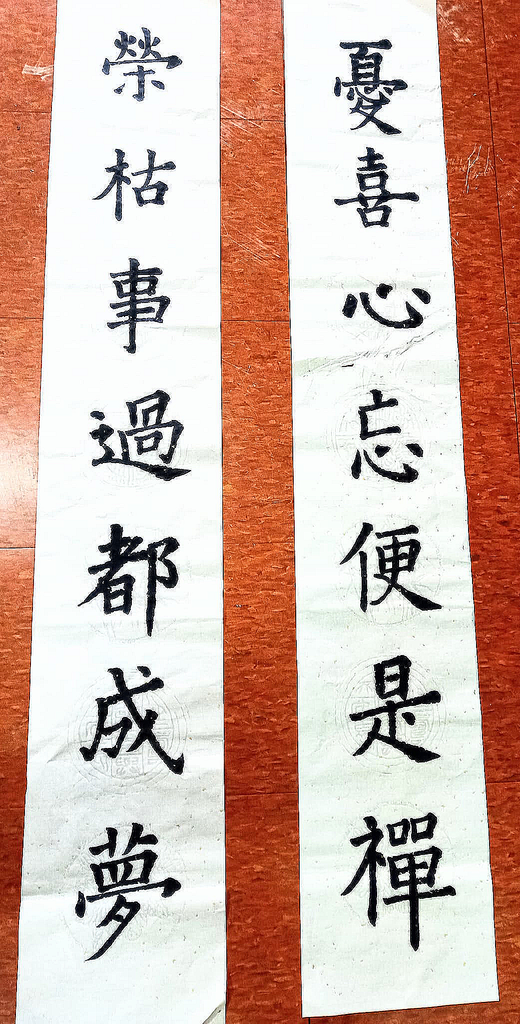 憂喜心忘便是禪
榮枯事過都成夢